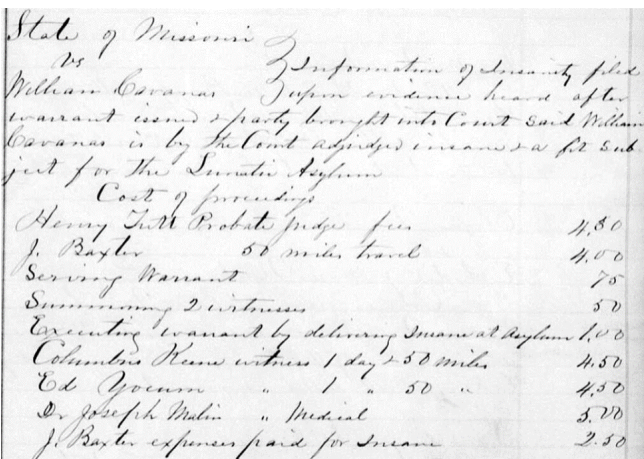 State of Missouri
vs } Information of Insanity filed
William Cavanas } upon evidence heard after
warrant issued & party brought into Court Said William
Cavanas is by the Court adjudged insane & a fit Sub
ject for the Lunatic Asylum
Cost of proceedings
Henry Tutt Probate Judge fees 4.80
J. Baxter 50 miles travel 4.00
Serving Warrant 75
Summoning 2 witnesses 50
Executing warrant by delivering Insane at Asylum 1.00
Columbus Keene witness 1 day & 50 miles 4.50
Ed Yocum " 1 " 50 " 4.50
Dr Joseph Malin " Medical 5.00
J. Baxter expenses paid for Insane 2.50